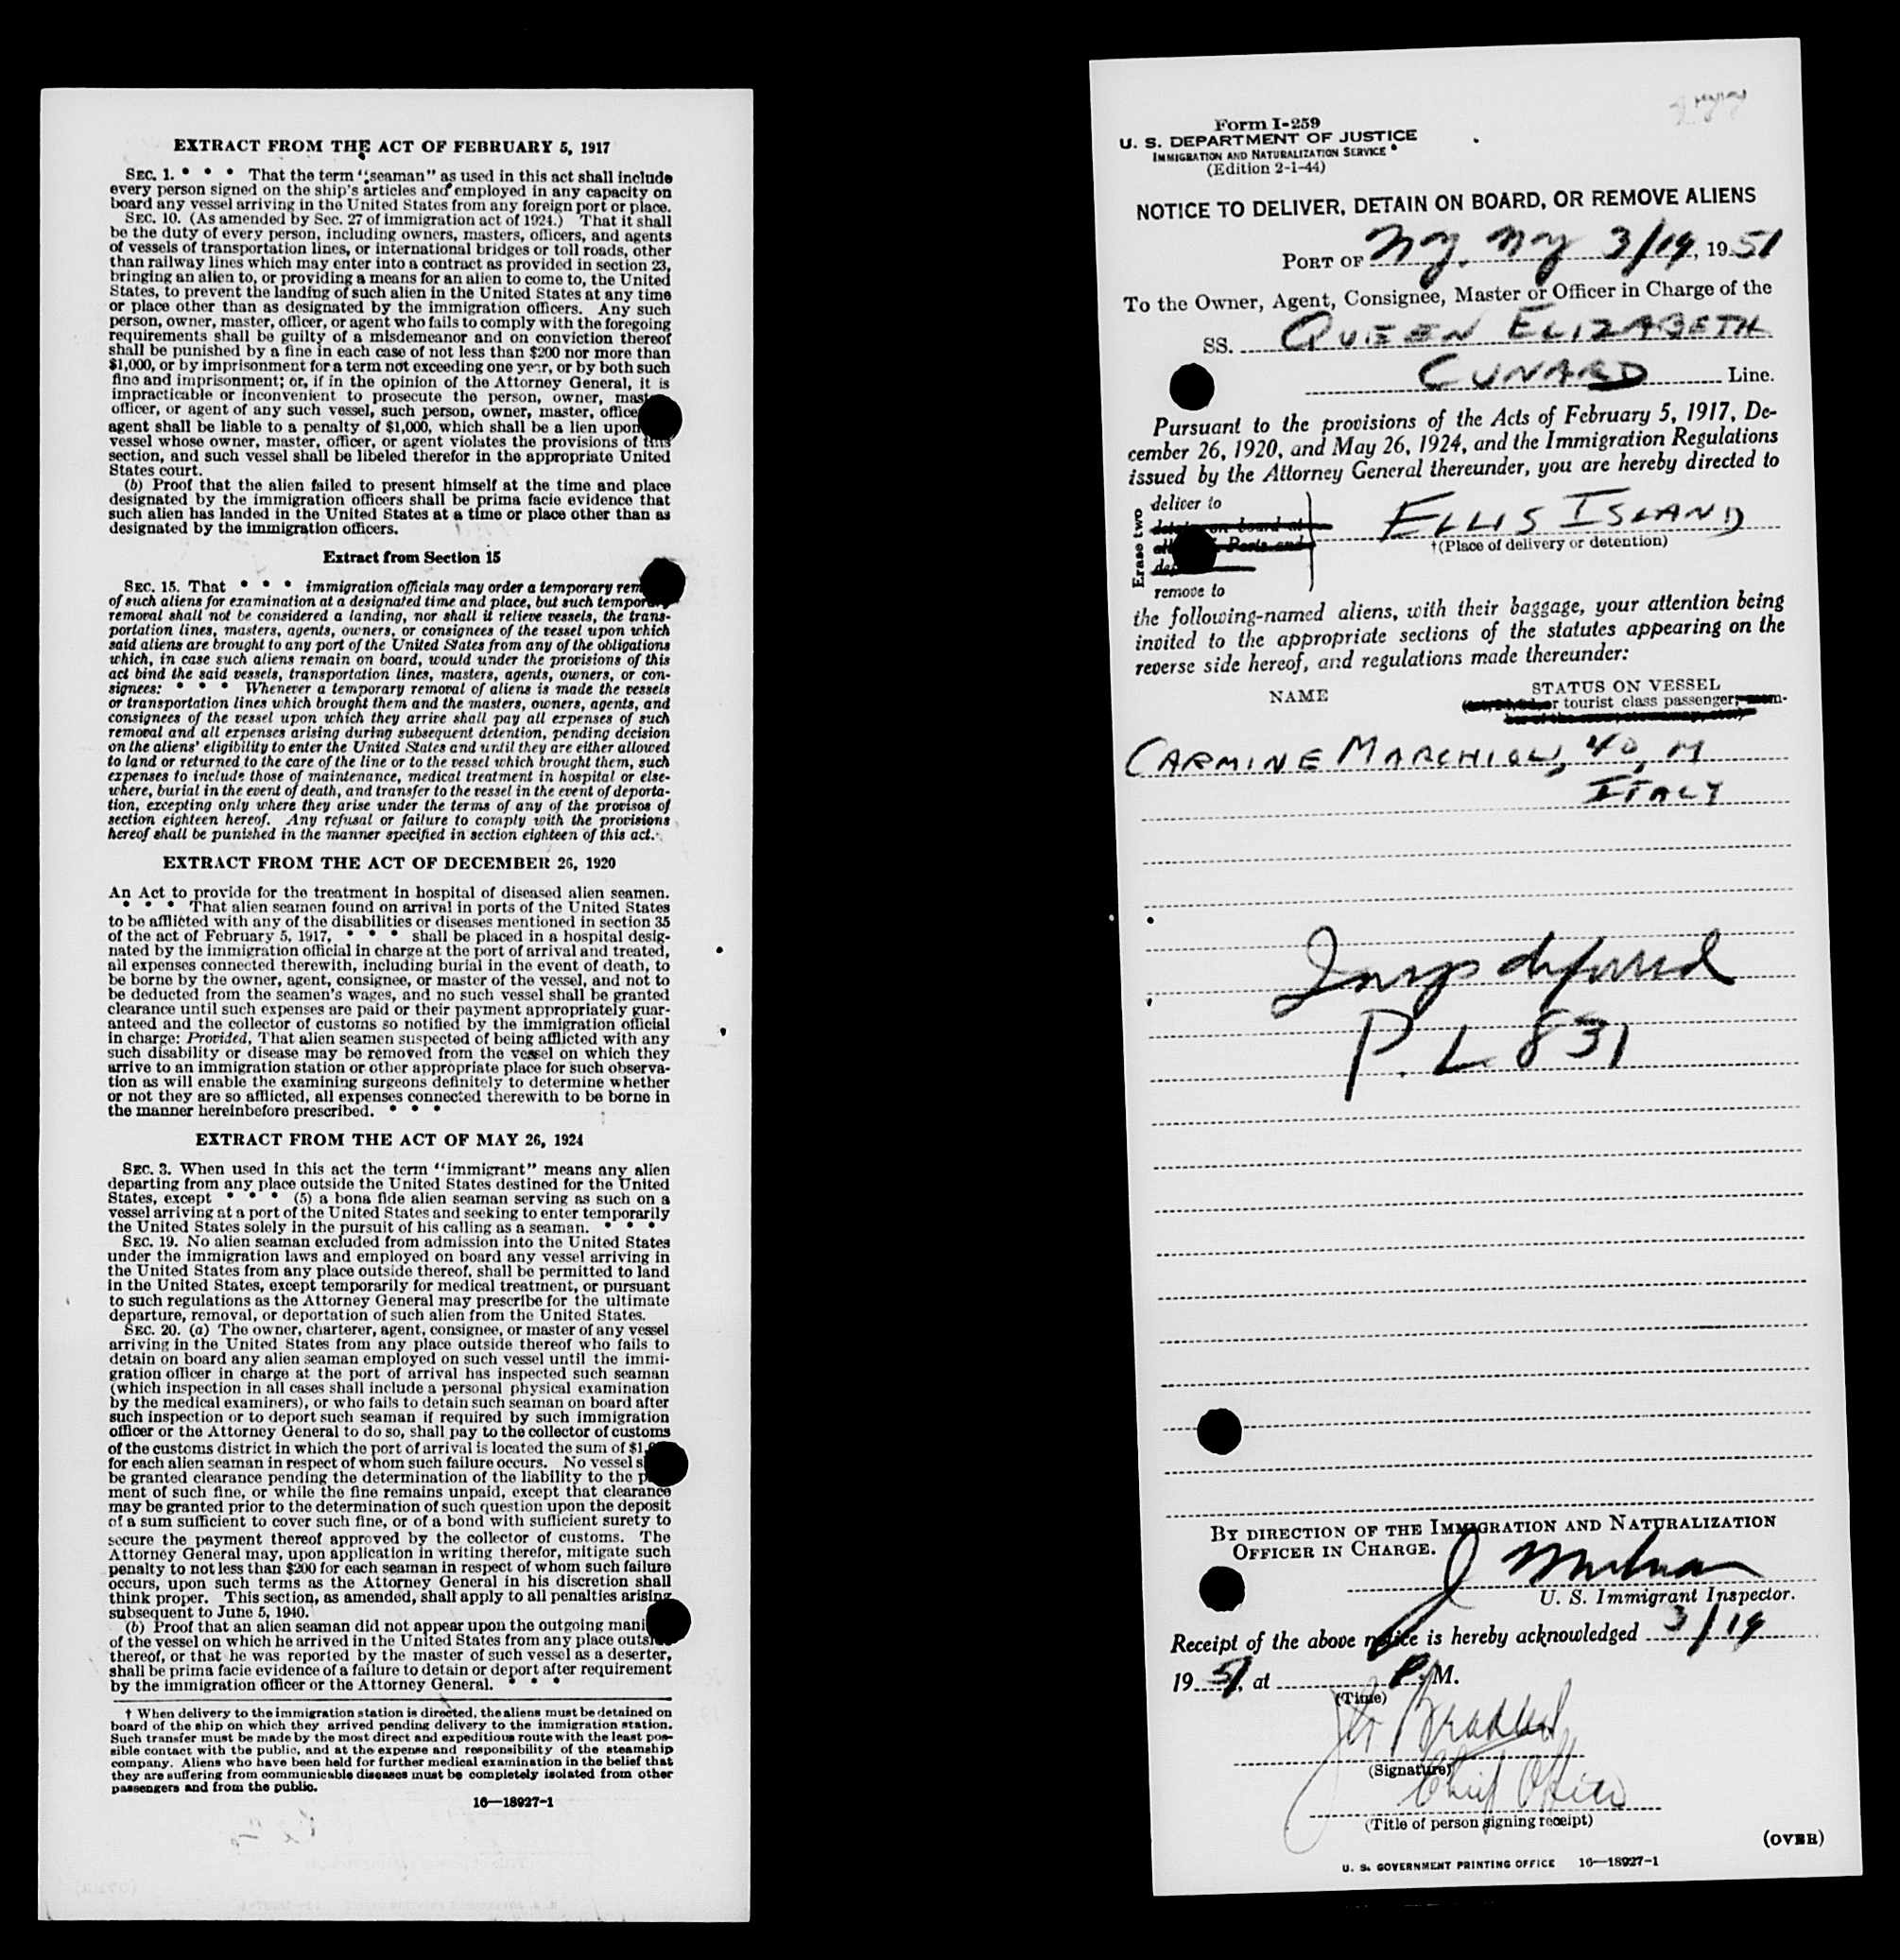 EXTRACT FROM THE ACT OF FEBRUARY 5, 1917
SEC. 1. * * * That the term "seaman" as used in this act shall include
every person signed on the ship's articles and employed in any capacity on
board any vessel arriving in the United States from any foreign port or place.
SEC. 10. (As amended by Sec. 27 of immigration act of 1924.) That it shall
be the duty of every person, including owners, masters, officers, and agents
of vessels of transportation lines, or international bridges or toll roads, other
than railway lines which may enter into a contract as provided in section 23,
bringing an alien to, or providing a means for an alien to come to, the United
States, to prevent the landing of such alien in the United States at any time
or place other than as designated by the immigration officers. Any such
person, owner, master, officer, or agent who fails to comply with the foregoing
requirements shall be guilty of a misdemeanor and on conviction thereof
shall be punished by a fine in each case of not less than $200 nor more than
$1,000, or by imprisonment for a term not exceeding one year, or by both such
fine and imprisonment; or, if in the opinion of the Attorney General, it is
impracticable or inconvenient to prosecute the person, owner, mast
officer, or agent of any such vessel, such person, owner, master, office
agent shall be liable to a penalty of $1,000, which shall be a lien upon
vessel whose owner, master, officer, or agent violates the provisions of this
section, and such vessel shall be libeled therefor in the appropriate United
States court.
(b) Proof that the alien failed to present himself at the time and place
designated by the immigration officers shall be prima facie evidence that
such alien has landed in the United States at a time or place other than as
designated by the immigration officers.
Extract from Section 15
SEC. 15. That * * * immigration officials may order a temporary rem
of such aliens for examination at a designated time and place, but such temporary
removal shall not be considered a landing, nor shall it relieve vessels, the trans-
portation lines, masters, agents, owners, or consignees of the vessel upon which
said aliens are brought to any port of the United States from any of the obligations
which, in case such aliens remain on board, would under the provisions of this
act bind the said vessels, transportation lines, masters, agents, owners, or con-
signees: * * * Whenever a temporary removal of aliens is made the vessels
or transportation lines which brought them and the masters, owners, agents, and
consignees of the vessel upon which they arrive shall pay all expenses of such
removal and all expenses arising during subsequent detention, pending decision
on the aliens' eligibility to enter the United States and until they are either allowed
to land or returned to the care of the line or to the vessel which brought them, such
expenses to include those of maintenance, medical treatment in hospital or else-
where, burial in the event of death, and transfer to the vessel in the event of deporta-
tion, excepting only where they arise under the terms of any of the provisos of
section eighteen hereof. Any refusal or failure to comply with the provisions
hereof shall be punished in the manner specified in section eighteen of this act.
EXTRACT FROM THE ACT OF DECEMBER 26, 1920
An Act to provide for the treatment in hospital of diseased alien seamen.
* * * That alien seamen found on arrival in ports of the United States
to be afflicted with any of the disabilities or diseases mentioned in section 35
of the act of February 5, 1917, * * * shall be placed in a hospital desig-
nated by the immigration official in charge at the port of arrival and treated,
all expenses connected therewith, including burial in the event of death, to
be borne by the owner, agent, consignee, or master of the vessel, and not to
be deducted from the seamen's wages, and no such vessel shall be granted
clearance until such expenses are paid or their payment appropriately guar-
anteed and the collector of customs so notified by the immigration official
in charge: Provided, That alien seamen suspected of being afflicted with any
such disability or disease may be removed from the vessel on which they
arrive to an immigration station or other appropriate place for such observa-
tion as will enable the examining surgeons definitely to determine whether
or not they are so afflicted, all expenses connected therewith to be borne in
the manner hereinbefore prescribed. * * *
EXTRACT FROM THE ACT OF MAY 26, 1924
SEC. 3. When used in this act the term "immigrant" means any alien
departing from any place outside the United States destined for the United
States, except * * * (5) a bona fide alien seaman serving as such on a
vessel arriving at a port of the United States and seeking to enter temporarily
the United States solely in the pursuit of his calling as a seaman. * * *
SEC. 19. No alien seaman excluded from admission into the United States
under the immigration laws and employed on board any vessel arriving in
the United States from any place outside thereof, shall be permitted to land
in the United States, except temporarily for medical treatment, or pursuant
to such regulations as the Attorney General may prescribe for the ultimate
departure, removal, or deportation of such alien from the United States.
SEC. 20. (a) The owner, charterer, agent, consignee, or master of any vessel
arriving in the United States from any place outside thereof who fails to
detain on board any alien seaman employed on such vessel until the immi-
gration officer in charge at the port of arrival has inspected such seaman
(which inspection in all cases shall include a personal physical examination
by the medical examiners), or who fails to detain such seaman on board after
such inspection or to deport such seaman if required by such immigration
officer or the Attorney General to do so, shall pay to the collector of customs
of the customs district in which the port of arrival is located the sum of $1,
for each alien seaman in respect of whom such failure occurs. No vessel s
be granted clearance pending the determination of the liability to the p
ment of such fine, or while the fine remains unpaid, except that clearance
may be granted prior to the determination of such question upon the deposit
of a sum sufficient to cover such fine, or of a bond with sufficient surety to
secure the payment thereof approved by the collector of customs. The
Attorney General may, upon application in writing therefor, mitigate such
penalty to not less than $200 for each seaman in respect of whom such failure
occurs, upon such terms as the Attorney General in his discretion shall
think proper. This section, as amended, shall apply to all penalties arising
subsequent to June 5, 1940.
(b) Proof that an alien seaman did not appear upon the outgoing mani
of the vessel on which he arrived in the United States from any place outside
thereof, or that he was reported by the master of such vessel as a deserter,
shall be prima facie evidence of a failure to detain or deport after requirement
by the immigration officer or the Attorney General. * * *
† When delivery to the immigration station is directed, the aliens must be detained on
board of the ship on which they arrived pending delivery to the immigration station.
Such transfer must be made by the most direct and expeditious route with the least pos-
sible contact with the public, and at the expense and responsibility of the steamship
company. Aliens who have been held for further medical examination in the belief that
they are suffering from communicable diseases must be completely isolated from other
passengers and from the public.
16—18927-1
Form I-259
U. S. DEPARTMENT OF JUSTICE
IMMIGRATION AND NATURALIZATION SERVICE
(Edition 2-1-44)
NOTICE TO DELIVER, DETAIN ON BOARD, OR REMOVE ALIENS
PORT OF NY. NY 3/19, 1951
To the Owner, Agent, Consignee, Master or Officer in Charge of the
SS. QUEEN ELIZABETH
CUNARD Line.
Pursuant to the provisions of the Acts of February 5, 1917, De-
cember 26, 1920, and May 26, 1924, and the Immigration Regulations
issued by the Attorney General thereunder, you are hereby directed to
Erase two
deliver to
detain on board at
Ports and
remove to
ELLIS ISLAND
†(Place of delivery or detention)
the following-named aliens, with their baggage, your attention being
invited to the appropriate sections of the statutes appearing on the
reverse side hereof, and regulations made thereunder:
NAME STATUS ON VESSEL
or tourist class passenger, mem-
ber of the crew, stowaway, etc.)
CARMINE 40, M
ITALY
Insp deferred
P. L 831
BY DIRECTION OF THE IMMIGRATION AND NATURALIZATION
OFFICER IN CHARGE.
U. S. Immigrant Inspector.
Receipt of the above notice is hereby acknowledged 3/19
1951, at P. M.
(Time)
(Signature)
Chief Officer
(Title of person signing receipt)
(OVER)
U. S. GOVERNMENT PRINTING OFFICE 16—18927-1